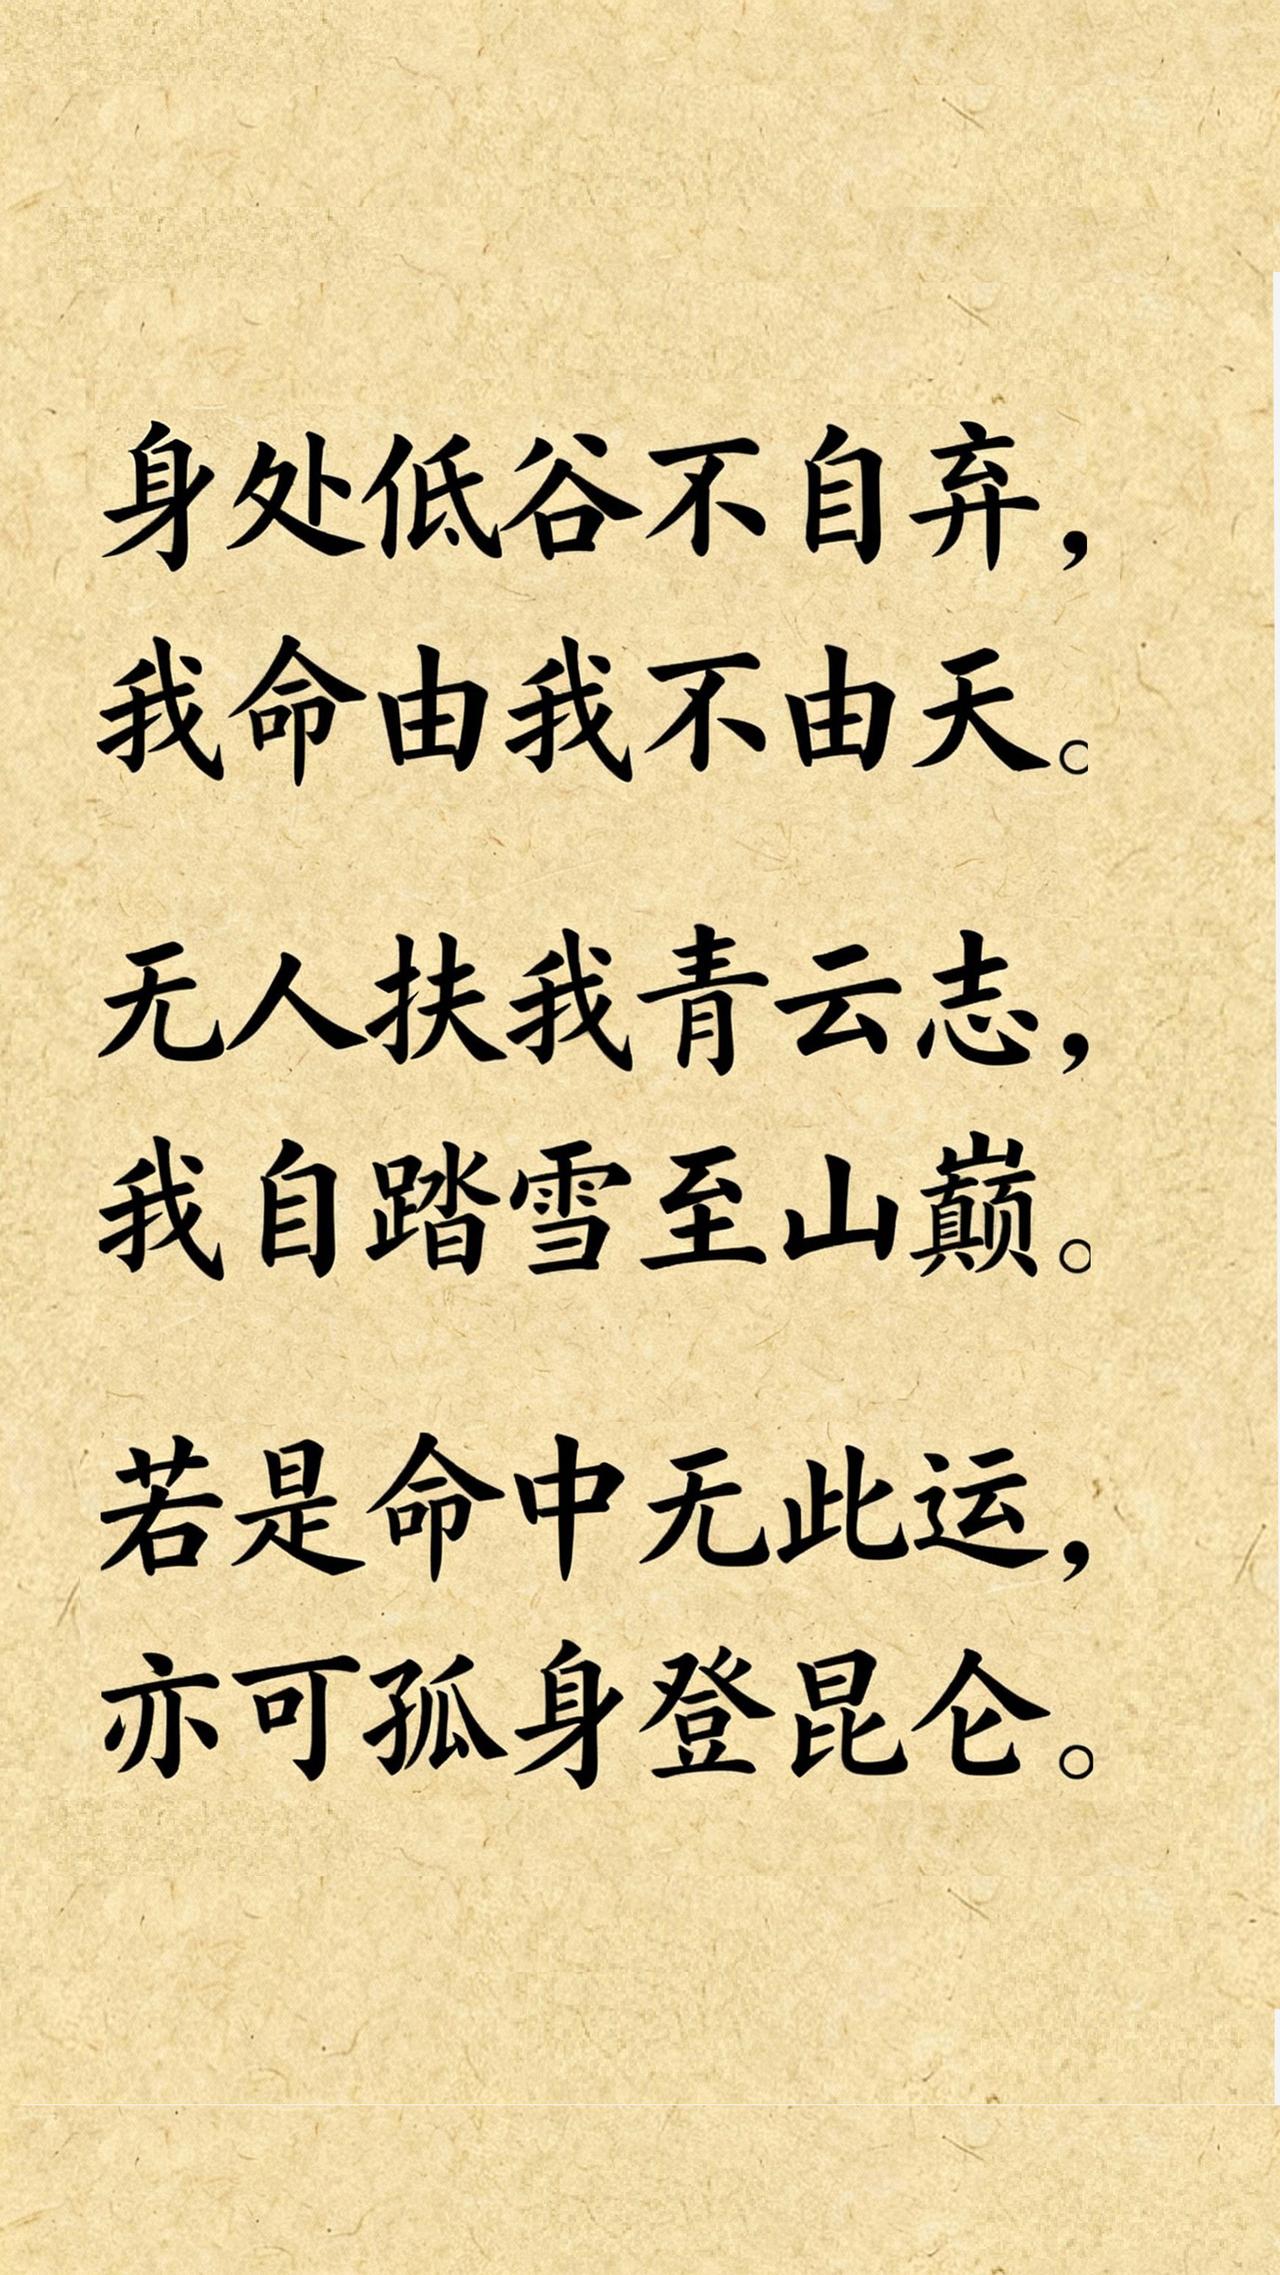 身处低谷不自弃，
我命由我不由天。
无人扶我青云志，
我自踏雪至山巅。
若是命中无此运，
亦可孤身登昆仑。